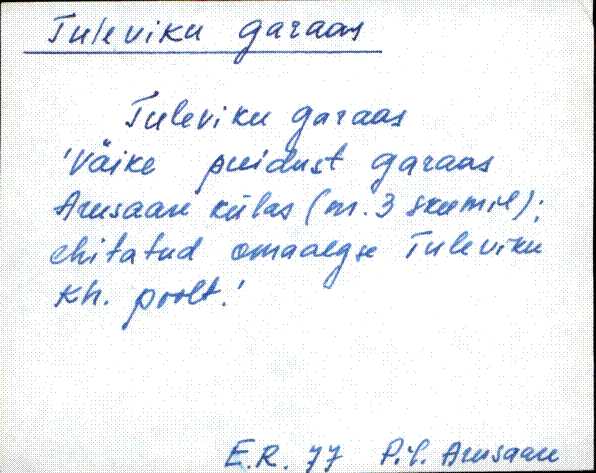 Tuleviku garaas
Tuleviku garaas
'Väike puidust garaas
Arusaare külas (nr. 3 skeemil);
ehitatud omaaegse Tuleviku
kh. poolt.'
E.R. 77 Pil. Arusaare